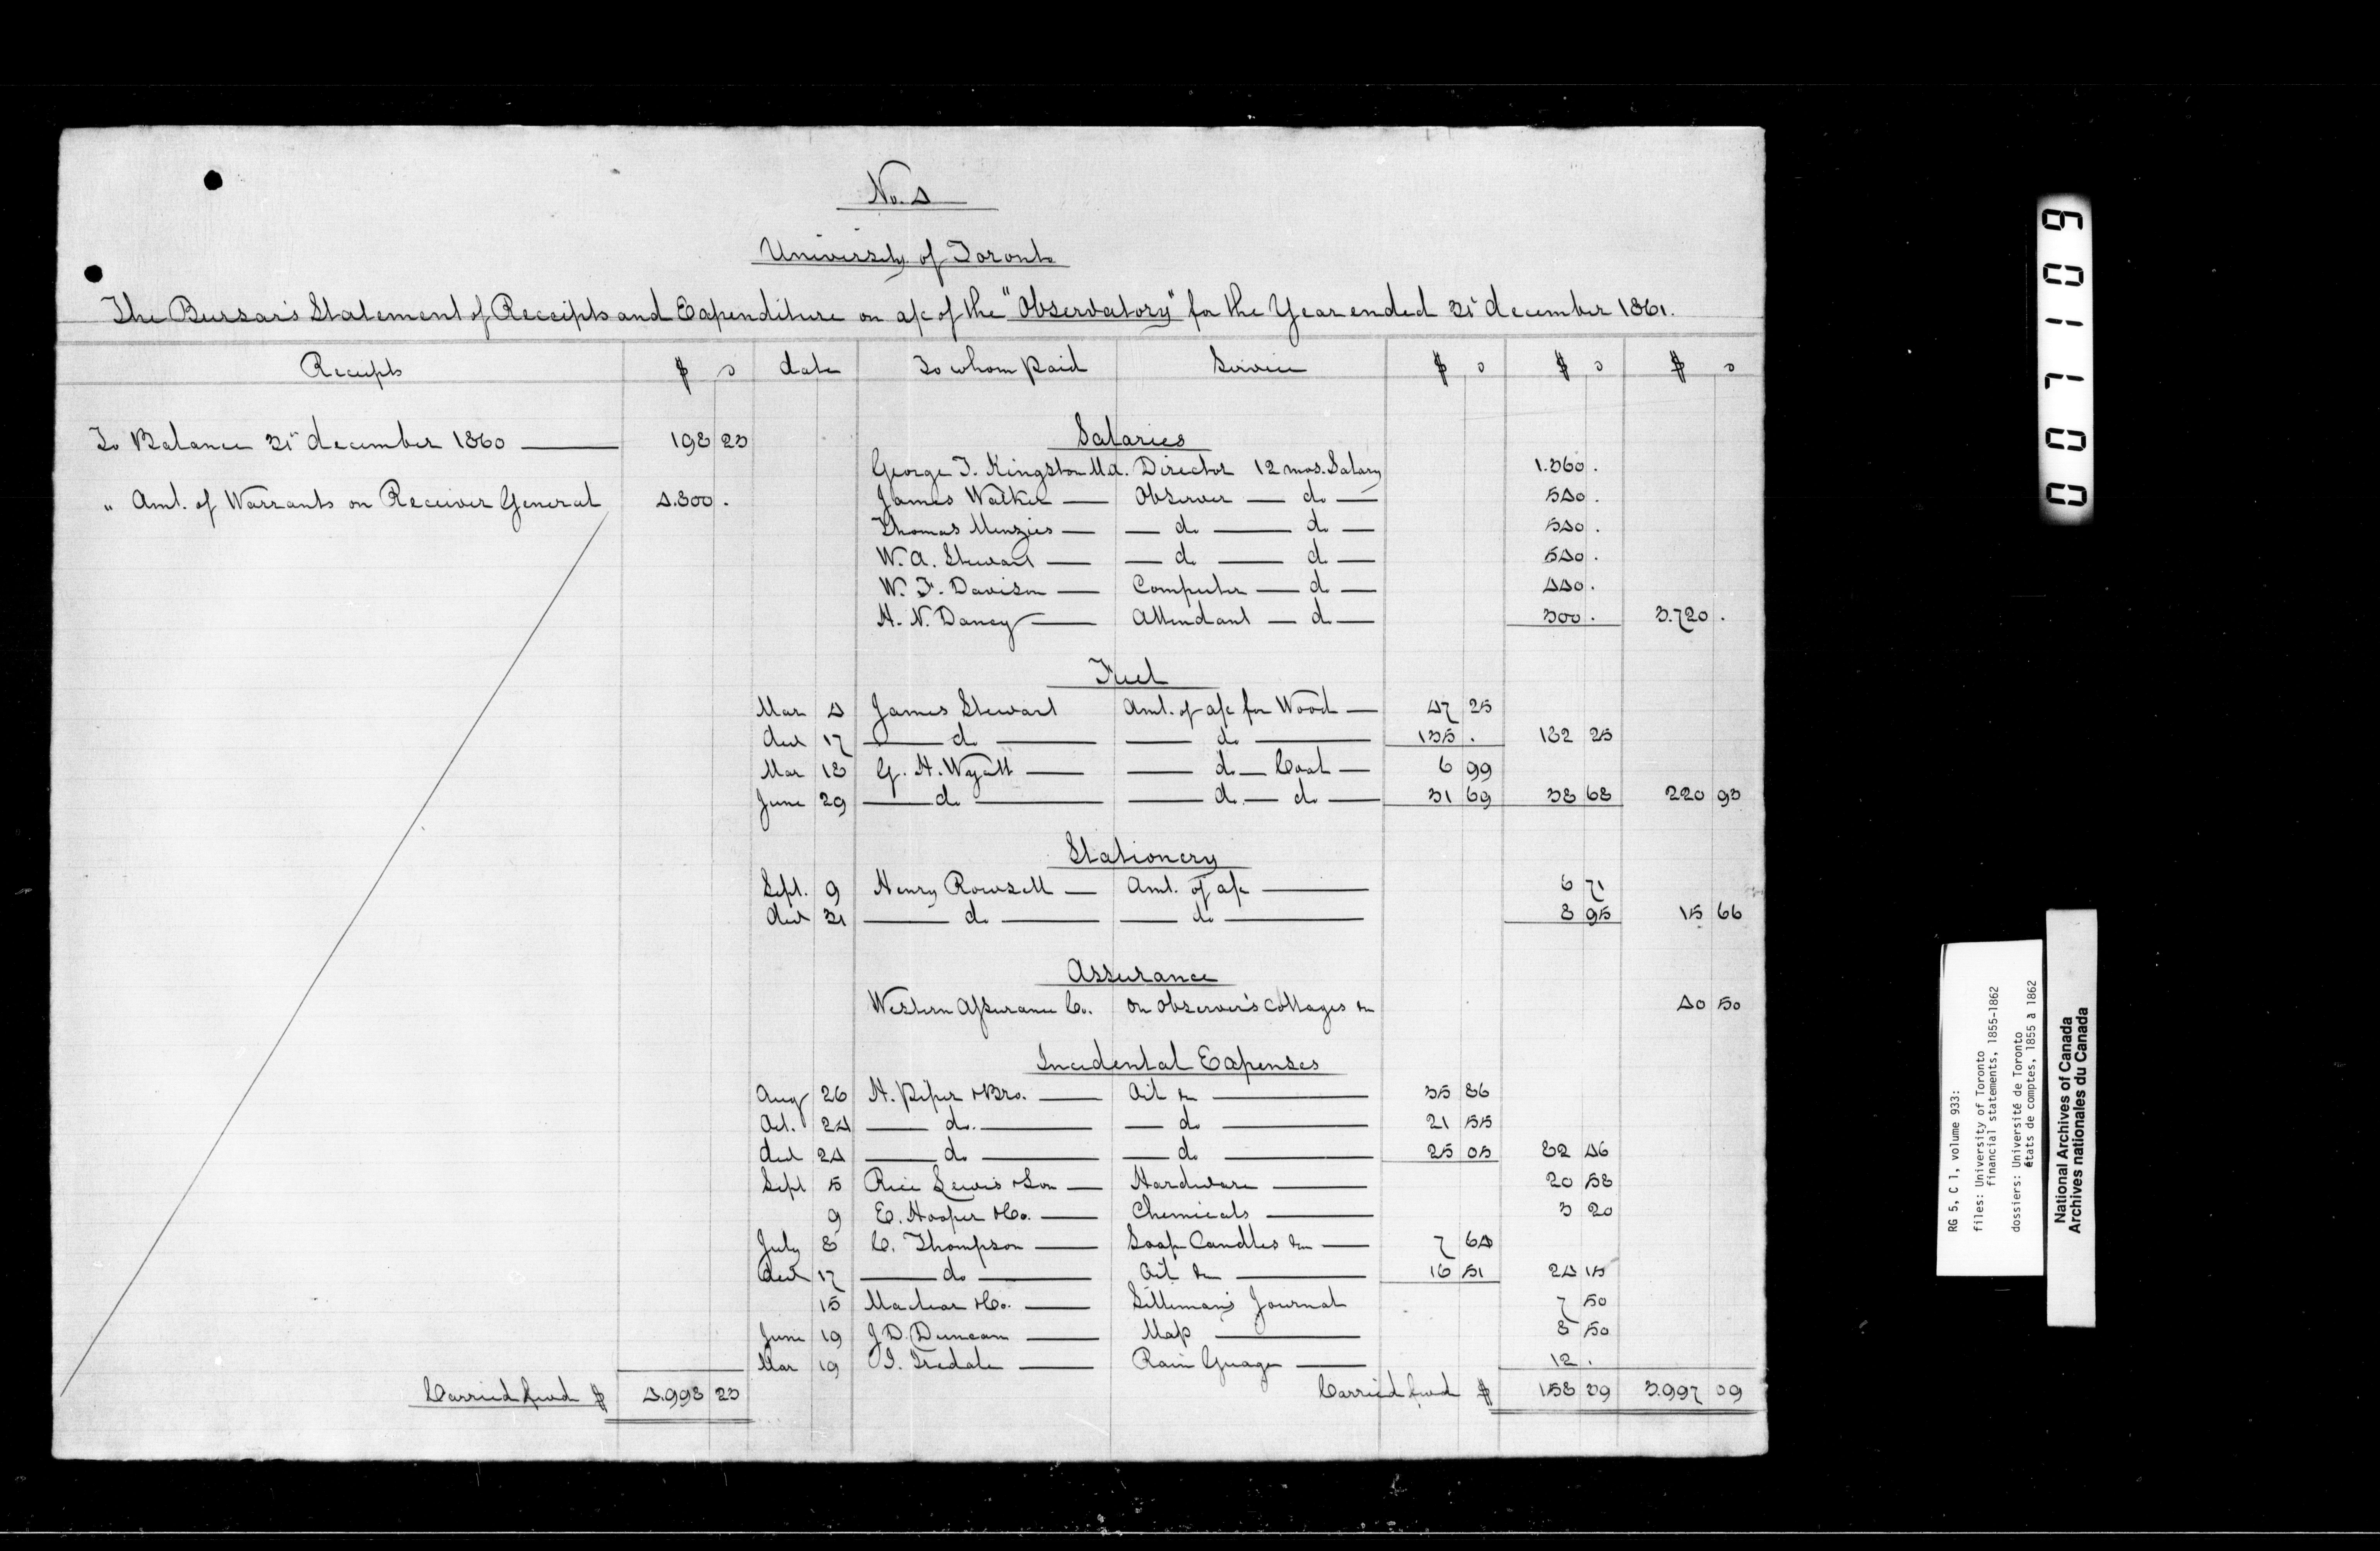 No. 4
University of Toronto
The Bursar's Statement of Receipts and Expenditure on a/c of the "Observatory" for the Year ended 31st December 1861.
Receipts $ c date To whom Paid Service $ c $ c $ c
Salaries
To Balance 31st December 1860 198 23
George T. Kingston M.A. Director 12 mos. Salary 1.360 .
" Amt. of Warrants on Receiver General 4.800 . James Walker Observer do 540 .
Thomas Menzies do do 540 .
W. A. Stewart do do 540 .
W. F. Davison Computer do 440 .
H. N. Dancy Attendant do 300 . 3.720 .
Fuel
Mar 4 James Stewart Amt. of a/c for Wood 47 25
Dec 17 do do 135 . 182 25
Mar 18 G. H. Wyatt do Coal 6 99
June 29 do do do 31 69 38 68 220 93
Stationery
Sept. 9 Henry Rowsell Amt. of a/c 6 71
Dec 31 do do 8 95 15 66
Assurance
Western Assurance Co. On Observer's Cottages &c 40 50
Incidental Expenses
Aug 26 H. Piper & Bro. Oil &c 35 86
Oct. 24 do. do 21 55
Dec 24 do do 25 05 82 46
Sept 5 Rice Lewis & Son Hardware 20 58
9 E. Hooper & Co. Chemicals 3 20
July 8 C. Thompson Soap Candles &c 7 64
Dec 17 do Oil &c 16 51 24 15
15 Maclear & Co. Silliman's Journal 7 50
June 19 J. D. Duncan Map 8 50
Mar 19 J. Iredale Rain Guage 12 .
Carried fwd $ 4.998 23 Carried fwd $ 158 39 3.997 09
007109
RG 5, C 1, volume 933:
files: University of Toronto
financial statements, 1855-1862
dossiers: Université de Toronto
états de comptes, 1855 à 1862
National Archives of Canada
Archives nationales du Canada